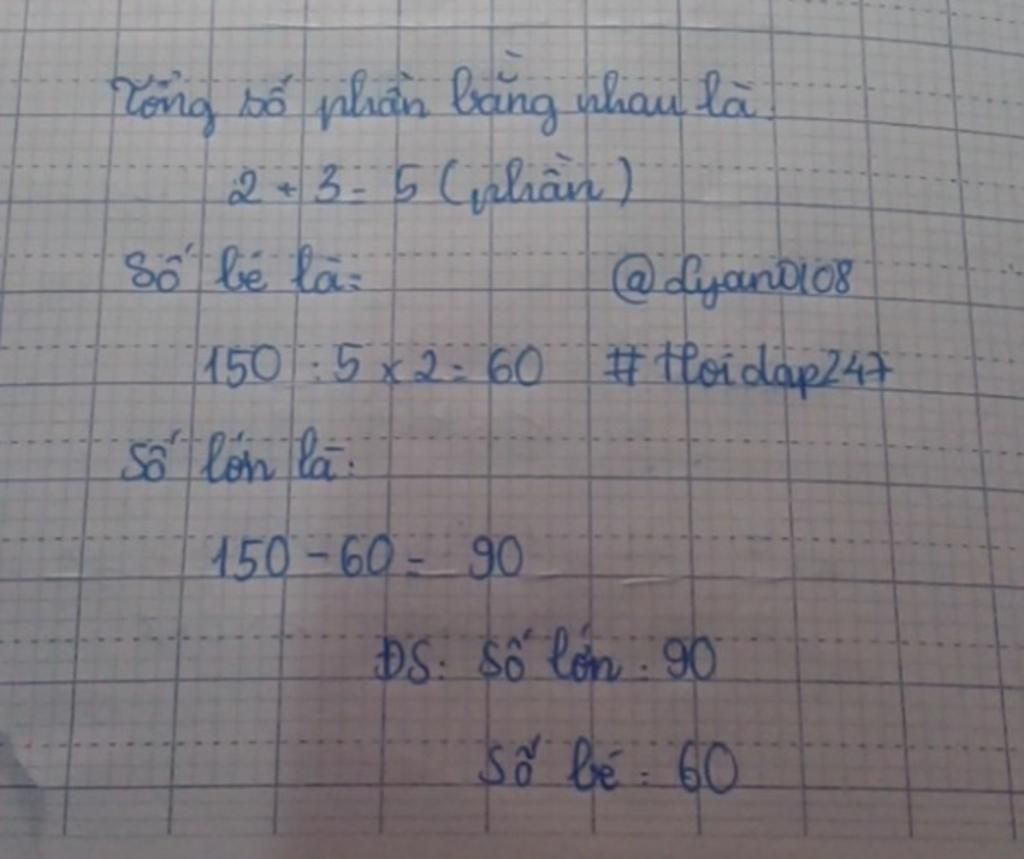 Tổng số phần bằng nhau là:
2 + 3 = 5 (phần)
Số bé là: @dyan0108
150 : 5 x 2 = 60 #Hoidap247
Số lớn là:
150 - 60 = 90
ĐS: Số lớn: 90
Số bé: 60